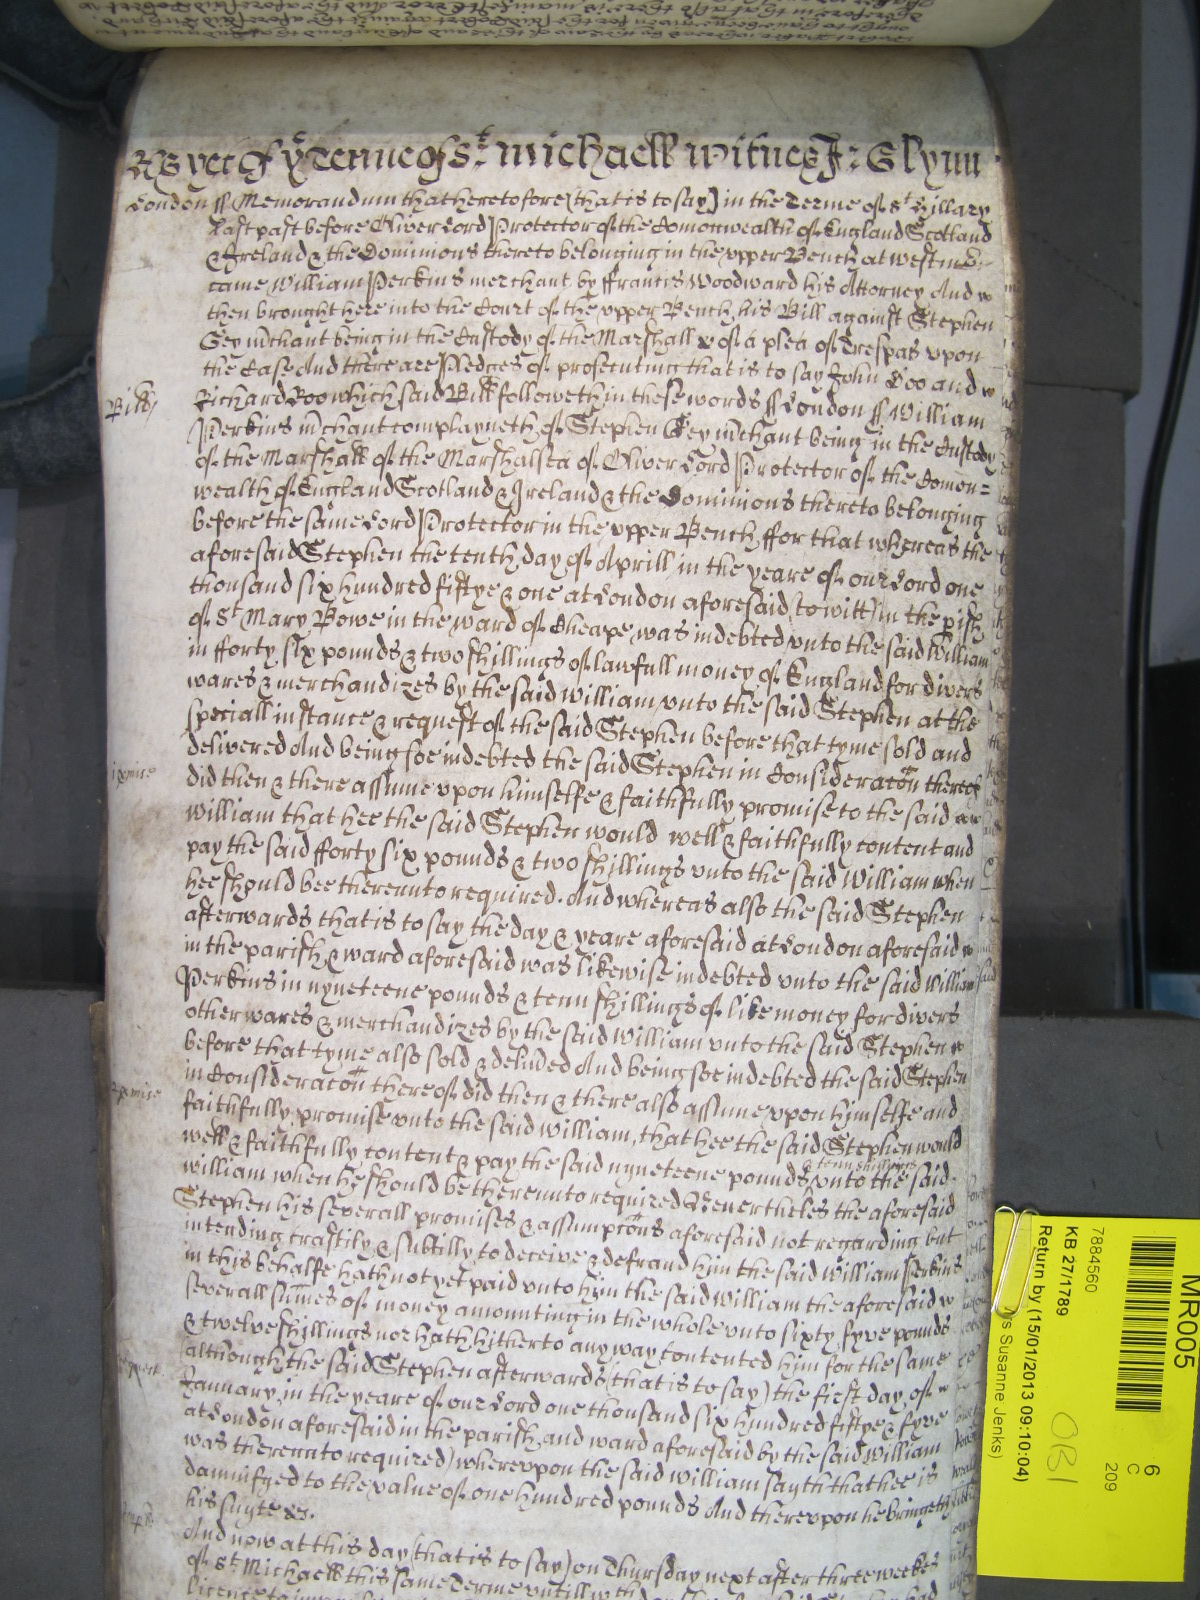 As yet of ye Terme of St. Michaell Witnes J: Glynn
London ss Memorandum that heretofore (that is to say) in the Terme of St Hillary
last past before Oliver Lord Protector of the Comonwealth of England Scotland
& Ireland & the Dominions thereto belonging in the upper Bench at Westmr
came William Perkins merchant by ffrancis Woodward his Attorney And
then brought here into the Court of the upper Bench his Bill against Stephen
Gey mchant being in the Custody of the Marshall &c of a plea of Trespas upon
the Case And there are Pledges of prosecuting that is to say John Doo and
Bill
Richard Roo which said Bill followeth in these words ss London ss William
Perkins mchant complayneth of Stephen Gey mchant being in the Custody
of the Marshall of the Marshalsea of Oliver Lord Protector of the Comon=
wealth of England Scotland & Ireland & the Dominions thereto belonging
before the same Lord Protector in the upper Bench ffor that whereas the
aforesaid Stephen the tenth day of Aprill in the yeare of our Lord one
thousand six hundred fiftye & one at London aforesaid (to witt) in the pish
of St Mary Bowe in the ward of Cheape was indebted unto the said William
in fforty six pounds & two shillings of lawfull money of England for divers
wares & merchandizes by the said William unto the said Stephen at the
speciall instance & request of the said Stephen before that tyme sold and
delivered And being soe indebted the said Stephen in Consideracon thereof
did then & there assume upon himselfe & faithfully promise to the said
William that hee the said Stephen would well & faithfully content and
pay the said fforty six pounds & two shillings unto the said William when
hee should bee thereunto required. And whereas also the said Stephen
afterwards that is to say the day & yeare aforesaid at London aforesaid
in the parish & ward aforesaid was likewise indebted unto the said William
Perkins in nyneteene pounds & tenn shillings of like money for divers
other wares & merchandizes by the said William unto the said Stephen
before that tyme also sold & delivered And being soe indebted the said Stephen
in Consideracon thereof did then & there also assume upon himselfe and
faithfully promise unto the said William, that hee the said Stephen would
well & faithfully content & pay the said nyneteene pounds & tenn shillings unto the said
William when he should be thereunto required Nevertheles the aforesaid
Stephen his severall promises & assumpcons aforesaid not regarding but
intending craftily & subtilly to deceive & defraud him the said William Perkins
in this behalfe hath not yet paid unto him the said William the aforesaid
severall sumes of money amounting in the whole unto sixty fyve pounds
& twelve shillings nor hath hitherto any way contented him for the same
although the said Stephen afterwards (that is to say) the first day of
January in the yeare of our Lord one thousand six hundred fiftye & fyve
at London aforesaid in the parish and ward aforesaid by the said William
was thereunto required) whereupon the said William sayth that hee is
damnifyed to the value of one hundred pounds And thereupon he bringeth
his suyte &c.
And now at this day (that is to say) on Thursday next after three weekes
of St Michaell this same Terme untill wch
MR005
6
C
209
7884560
KB 27/1789
Return by (15/01/2013 09:10:04)
Susanne Jenks)
OB1